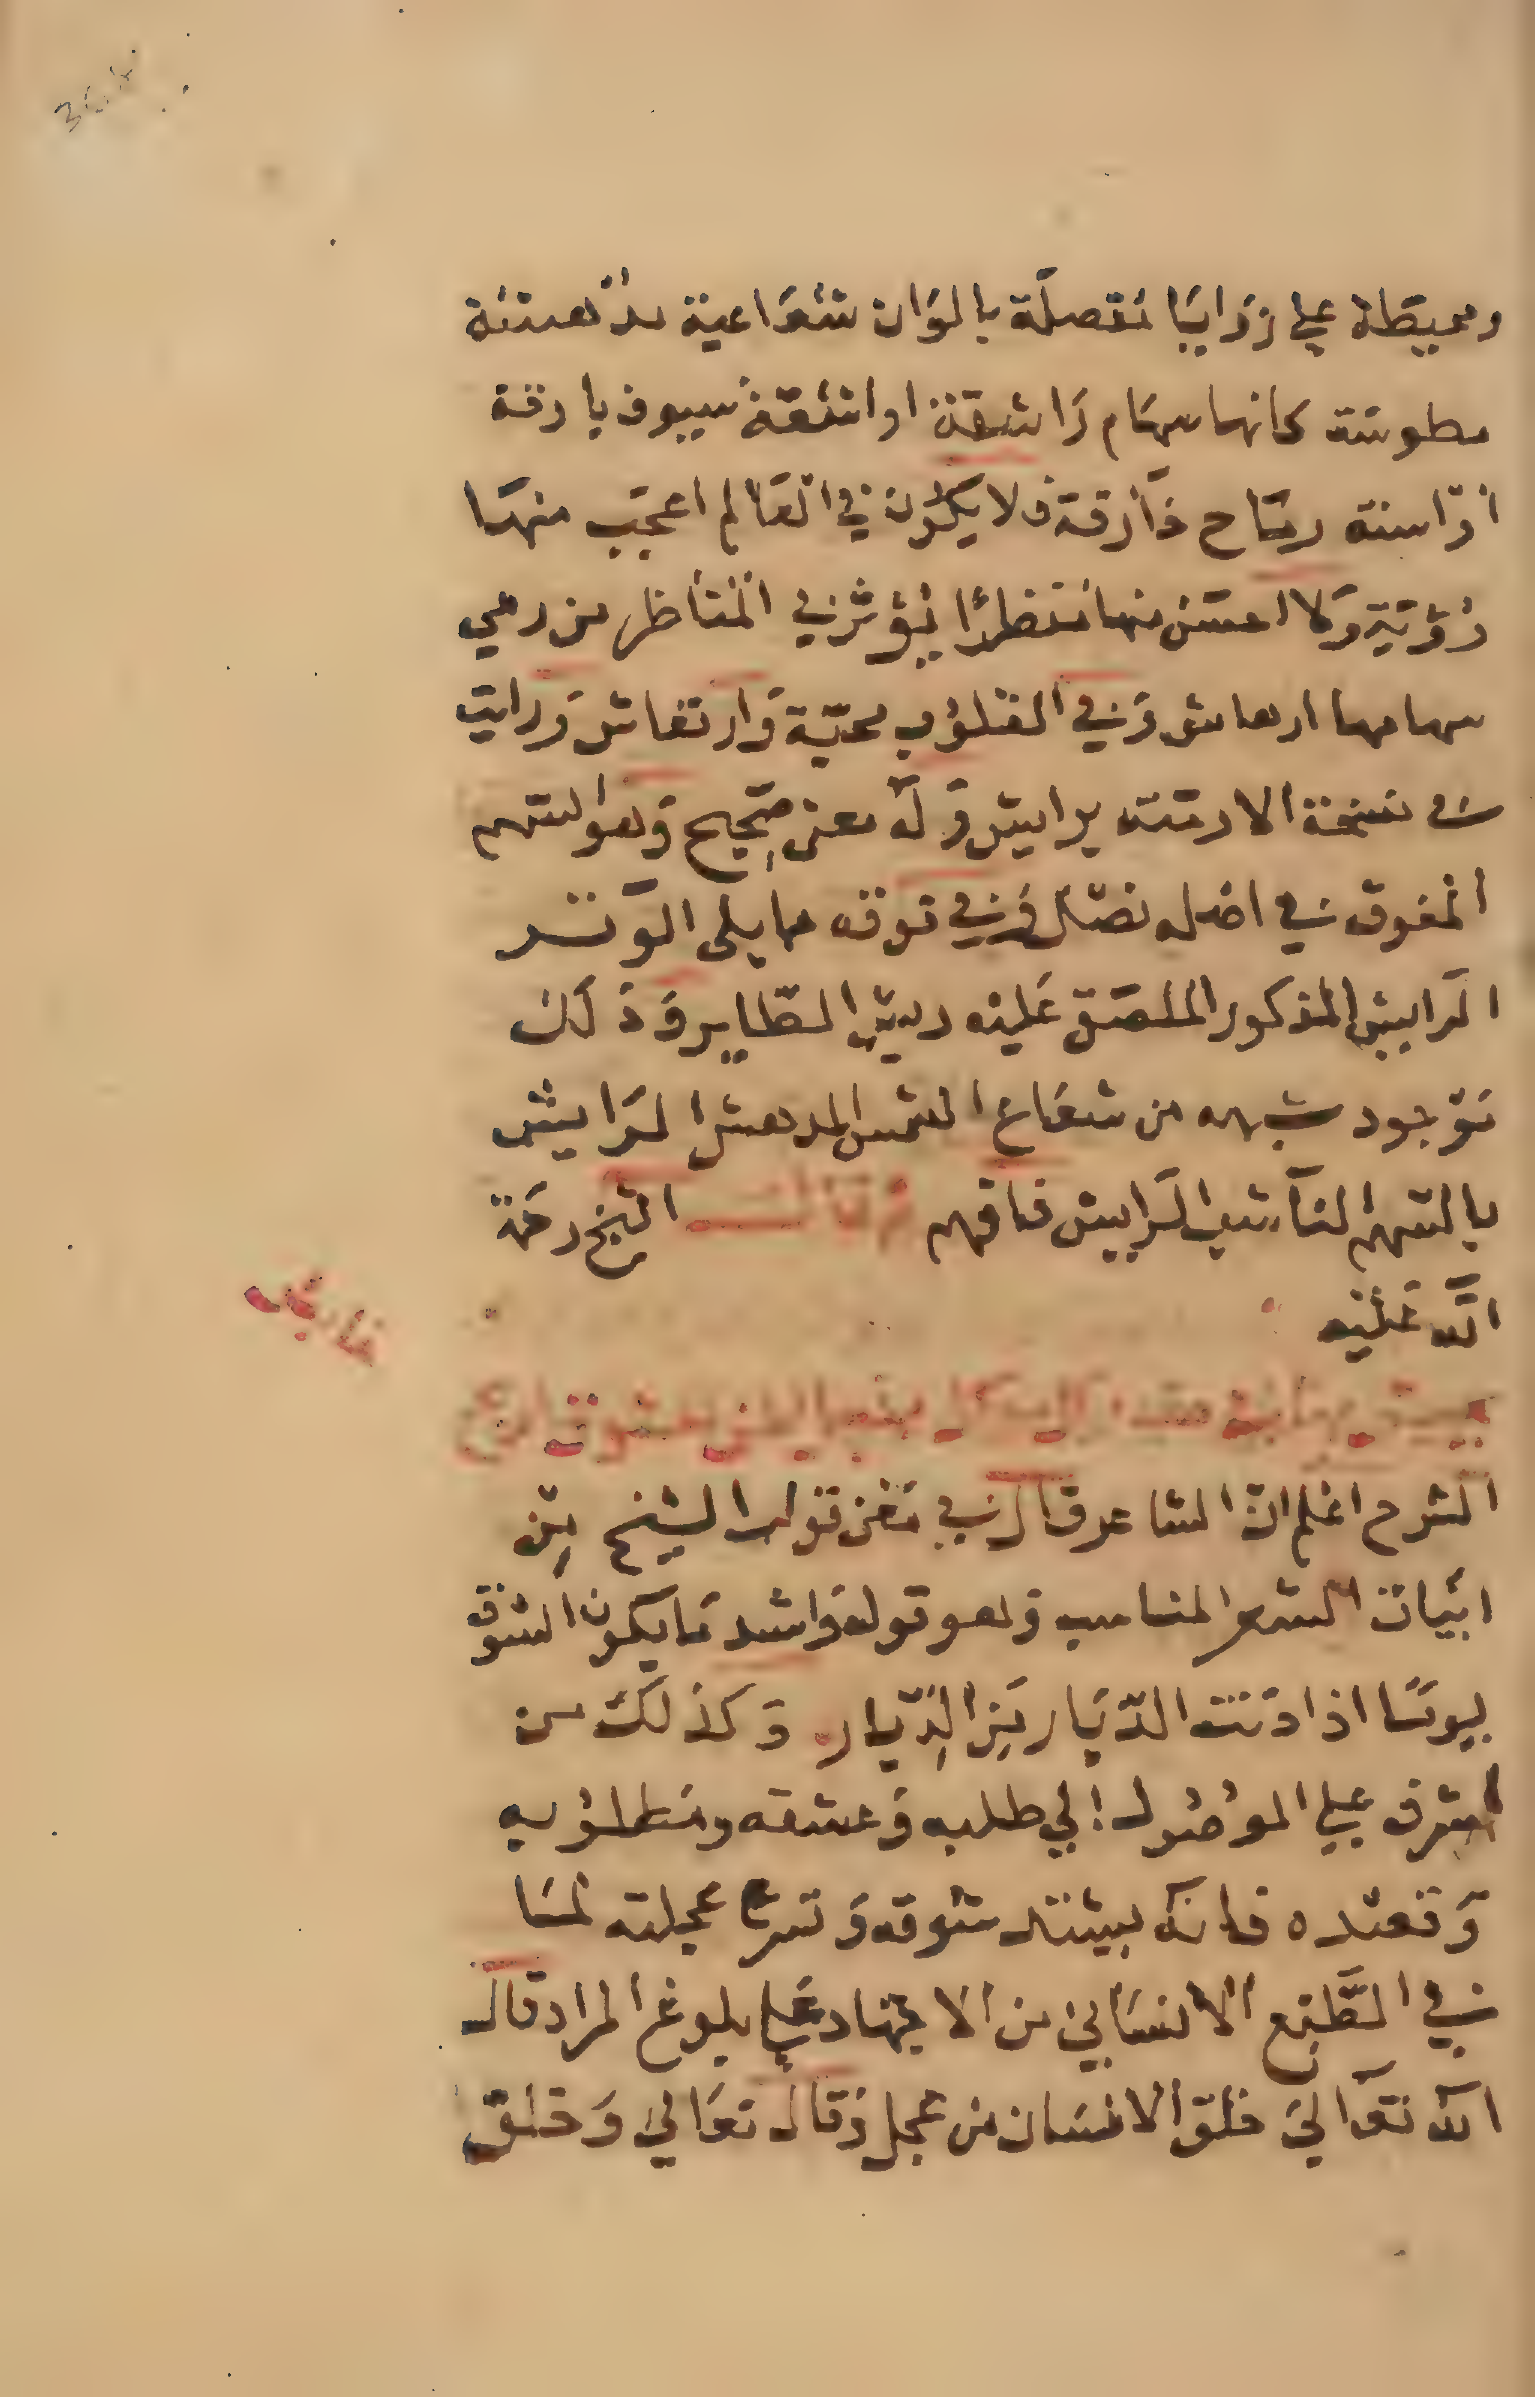 ومحيطة علي زوايا متصلة بالوان شعاعية مدهشة
مطوسة كانها سهام راشقة او اشعة سيوف بارقة
او اسنة رماح خارقة فلا يكون في العالم اعجب منها
رؤية ولا احسن منها منظرًا يؤثر في المناظر من رمي
سهامها ارهاش وفي القلوب محبة وارتعاش ورايت
في نسخة الا ومنه برايش وله معني صحيح وهو السهم
المفوق في اصله نصال وفي فوقه مما يلي الوتر
الرايش المذكور الملصق عليه ريش الطاير وذلك
موجود شبهه من شعاع الشمس المدهش الرايش
بالسهم الناشب الرايش فافهم قال الشيخ رحمة
الله عليه
الشرح اعلم ان الشاعر قال في معني قول الشيخ من
ابيات الشعر المناسب وهو قوله واشد ما يكون الشوق
يومًا اذا دنت الديار من الديار وكذلك من
اشرف علي الموصول الي طلبه وعشقه ومطلوبه
وقصده فانه يشتد شوقه وتسرع عجلته لما
في الطبع الانساني من الاجتهاد علي بلوغ المراد قال
الله تعالي خلق الانسان من عجل وقال تعالي وخلق